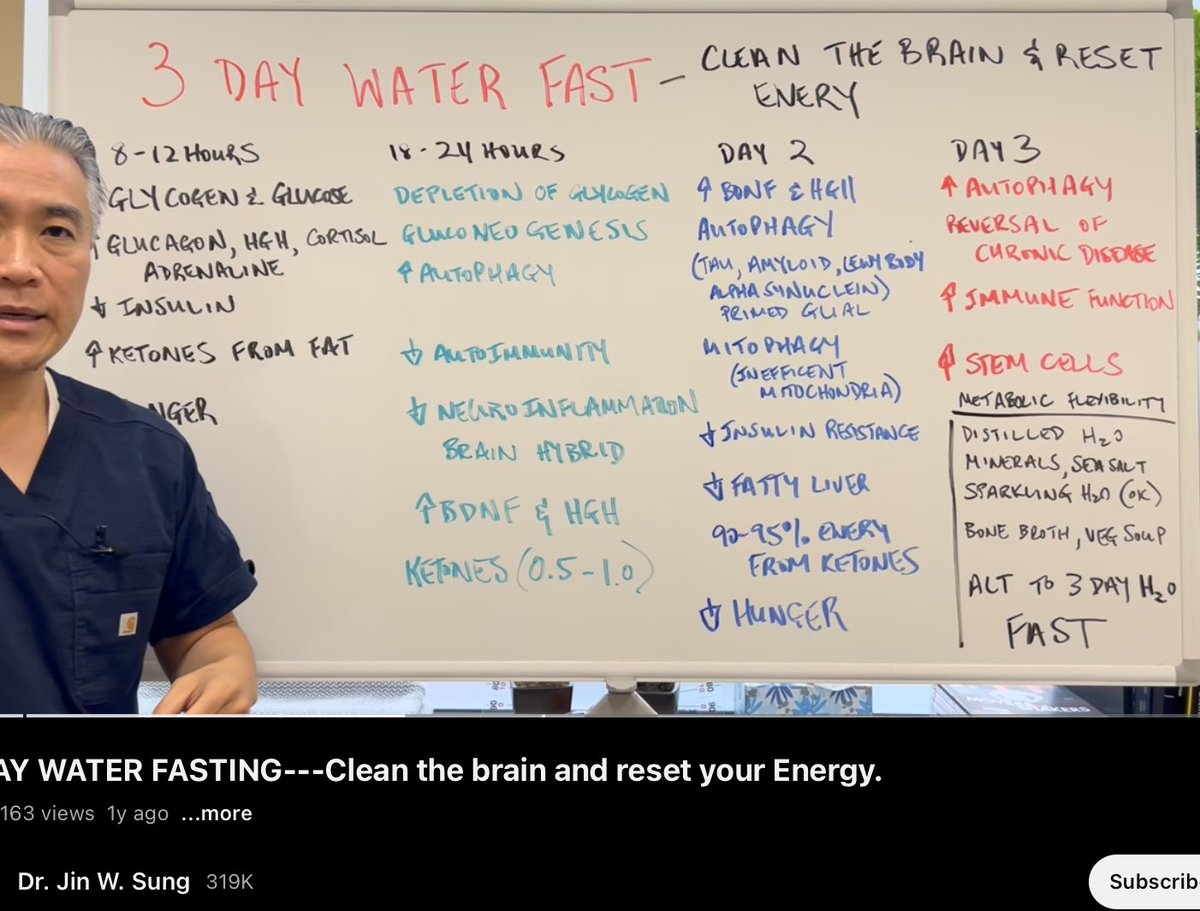 3 DAY WATER FAST - CLEAN THE BRAIN & RESET
ENERY
8-12 HOURS
GLYCOGEN & GLUCOSE
↑ GLUCAGON, HGH, CORTISOL
ADRENALINE
↓ INSULIN
↑ KETONES FROM FAT
NGER
18-24 HOURS
DEPLETION OF GLYCOGEN
GLUCONEOGENESIS
↑ AUTOPHAGY
↓ AUTOIMMUNITY
↓ NEUROINFLAMMATION
BRAIN HYBRID
↑ BDNF & HGH
KETONES (0.5-1.0)
DAY 2
↑ BDNF & HGH
AUTOPHAGY
(TAU, AMYLOID, LEWY BODY
ALPHA SYNUCLEIN)
PRIMED GLIAL
MITOPHAGY
(INEFFICENT
MITOCHONDRIA)
↓ INSULIN RESISTANCE
↓ FATTY LIVER
90-95% ENERY
FROM KETONES
↓ HUNGER
DAY 3
↑ AUTOPHAGY
REVERSAL OF
CHRONIC DISEASE
↑ IMMUNE FUNCTION
↑ STEM CELLS
METABOLIC FLEXIBILITY
DISTILLED H₂O
MINERALS, SEA SALT
SPARKLING H₂O (OK)
BONE BROTH, VEG SOUP
ALT TO 3 DAY H₂O
FAST
AY WATER FASTING---Clean the brain and reset your Energy.
163 views 1y ago ...more
Dr. Jin W. Sung 319K
Subscrib